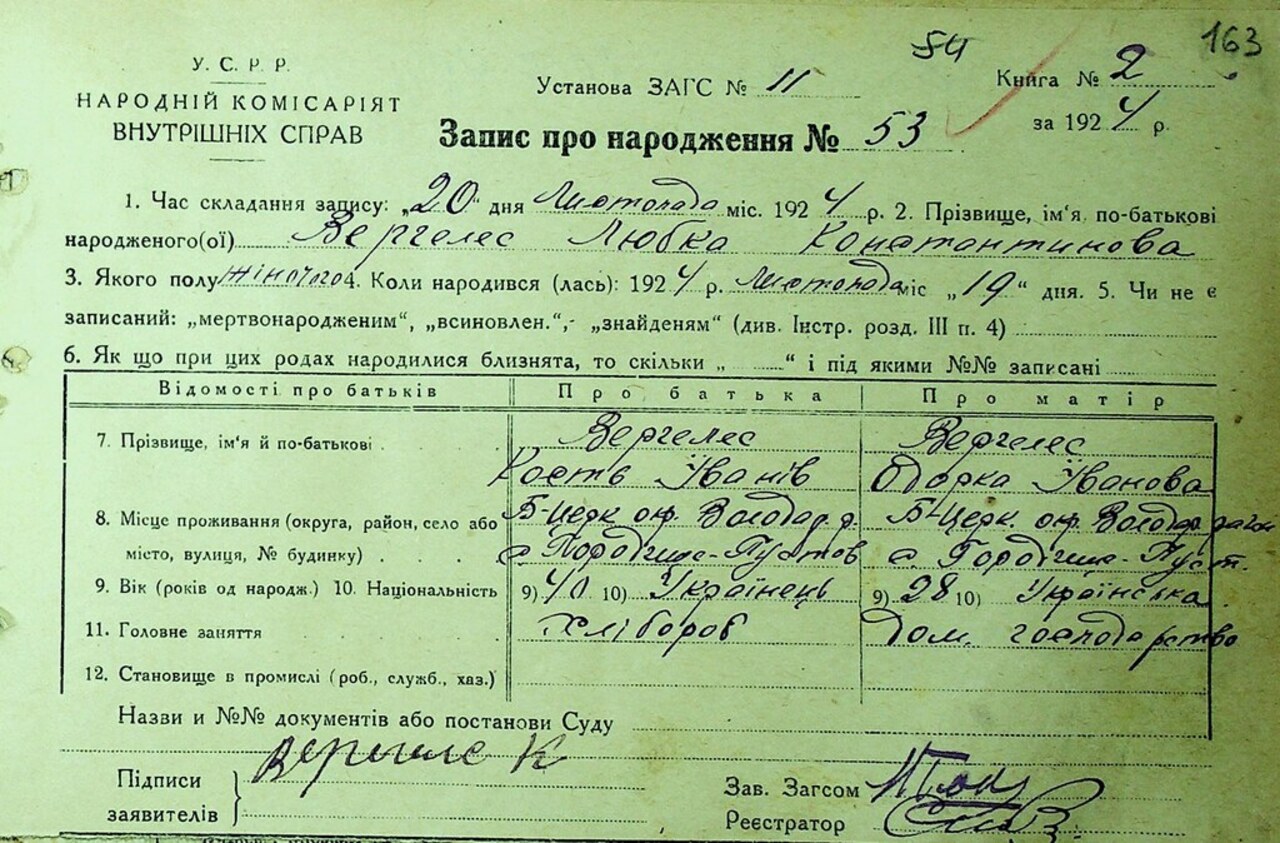 54 163
У. С. Р. Р.
НАРОДНІЙ КОМІСАРІЯТ
ВНУТРІШНІХ СПРАВ
Установа ЗАГС № 11
Книга № 2
за 1924 р.
Запис про народження № 53
1. Час складання запису: „20" дня Листопада міс. 1924 р. 2. Прізвище, ім'я по-батькові
народженого(ої) Вергелес Любка Константинова
3. Якого полу жіночого 4. Коли народився (лась): 1924 р. Листопада міс „19" дня. 5. Чи не є
записаний: „мертвонародженим", „всиновлен.",- „знайденям" (див. Інстр. розд. III п. 4)
6. Як що при цих родах народилися близнята, то скільки „ " і під якими №№ записані
Відомості про батьків Про батька Про матір
7. Прізвище, ім'я й по-батькові Вергелес Вергелес
Кость Їванів Одарка Їванова
8. Місце проживання (округа, район, село або Б-Церк окр. Володар. р. Б-Церк. окр. Володар. район
місто, вулиця, № будинку) с. Городище-Пустов с. Городище-Пуст.
9. Вік (років од народж.) 10. Національність 9) 40 10) Українець 9) 28 10) Українська
11. Головне заняття хлібороб Дом. господарство
12. Становище в промислі (роб., служб., хаз.)
Назви и №№ документів або постанови Суду
Вергелес К
Підписи
заявителів
Зав. Загсом
Реєстратор